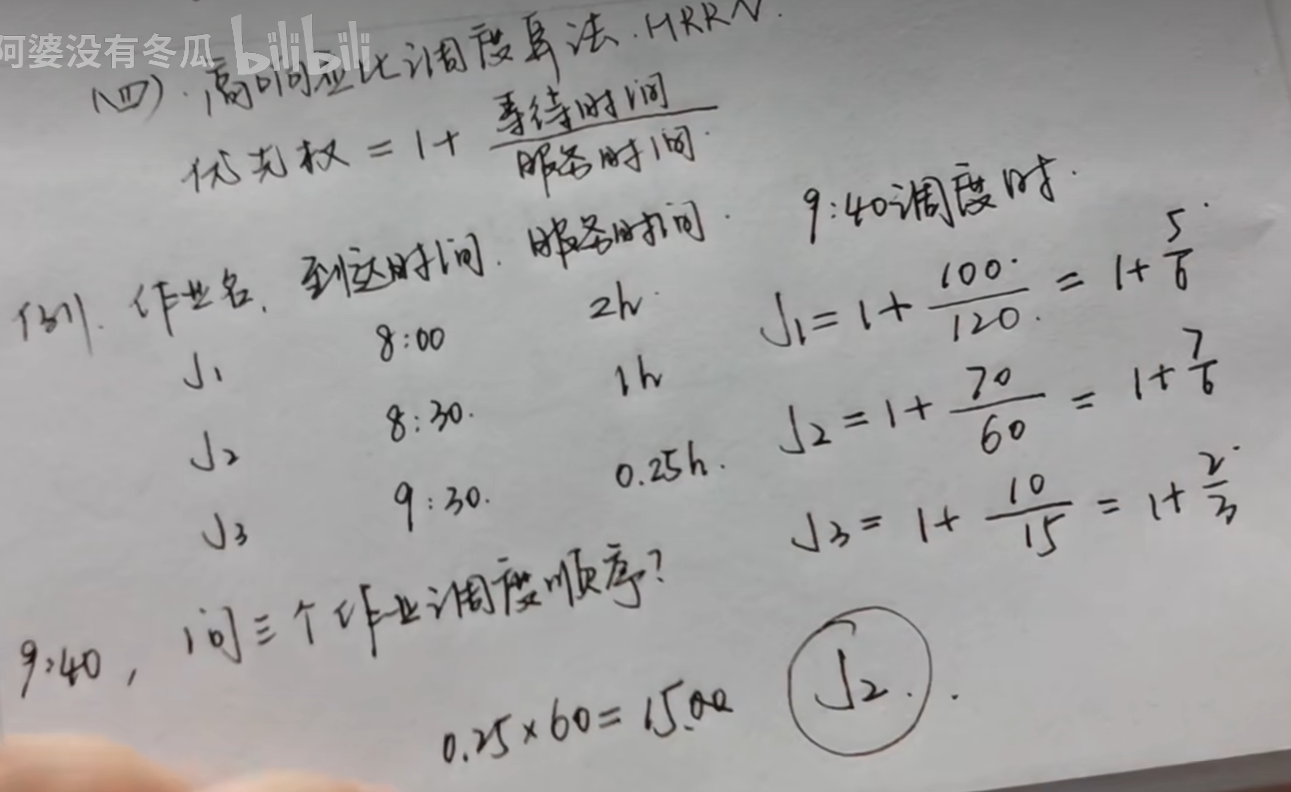 阿婆没有冬瓜 bilibili
(四).高响应比调度算法.HRRN.
优先权 = 1+ 等待时间/服务时间.
例. 作业名. 到达时间. 服务时间.
J1 8:00 2h.
J2 8:30. 1h
J3 9:30. 0.25h.
9:40, 问三个作业调度顺序?
0.25×60=15.00
9:40调度时.
J1=1+ 100/120. = 1+ 5/6
J2=1+ 70/60 = 1+ 7/6
J3= 1+ 10/15 = 1+ 2/3
J2.